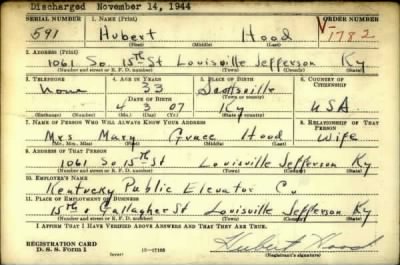 Discharged November 14, 1944
SERIAL NUMBER 1. NAME (Print) ORDER NUMBER
591 Hubert Hood V-1782
(First) (Middle) (Last)
2. ADDRESS (Print)
1061 So. 15th St Louisville Jefferson Ky
(Number and street or R. F. D. number) (Town) (County) (State)
3. TELEPHONE 4. AGE IN YEARS 5. PLACE OF BIRTH 6. COUNTRY OF CITIZENSHIP
None 33 Scottsville
(Town or county)
DATE OF BIRTH
4 3 07 Ky USA
(Exchange) (Number) (Mo.) (Day) (Yr.) (State or country)
7. NAME OF PERSON WHO WILL ALWAYS KNOW YOUR ADDRESS 8. RELATIONSHIP OF THAT PERSON
Mrs. Mary Grace Hood Wife
(Mr., Mrs., Miss) (First) (Middle) (Last)
9. ADDRESS OF THAT PERSON
1061 So 15th St Louisville Jefferson Ky
(Number and street or R. F. D. number) (Town) (County) (State)
10. EMPLOYER'S NAME
Kentucky Public Elevator Co
11. PLACE OF EMPLOYMENT OR BUSINESS
15th & Gallagher St Louisville Jefferson Ky
(Number and street or R. F. D. number) (Town) (County) (State)
I AFFIRM THAT I HAVE VERIFIED ABOVE ANSWERS AND THAT THEY ARE TRUE.
REGISTRATION CARD
D. S. S. Form 1 (over) Hubert Hood
(Registrant's signature)